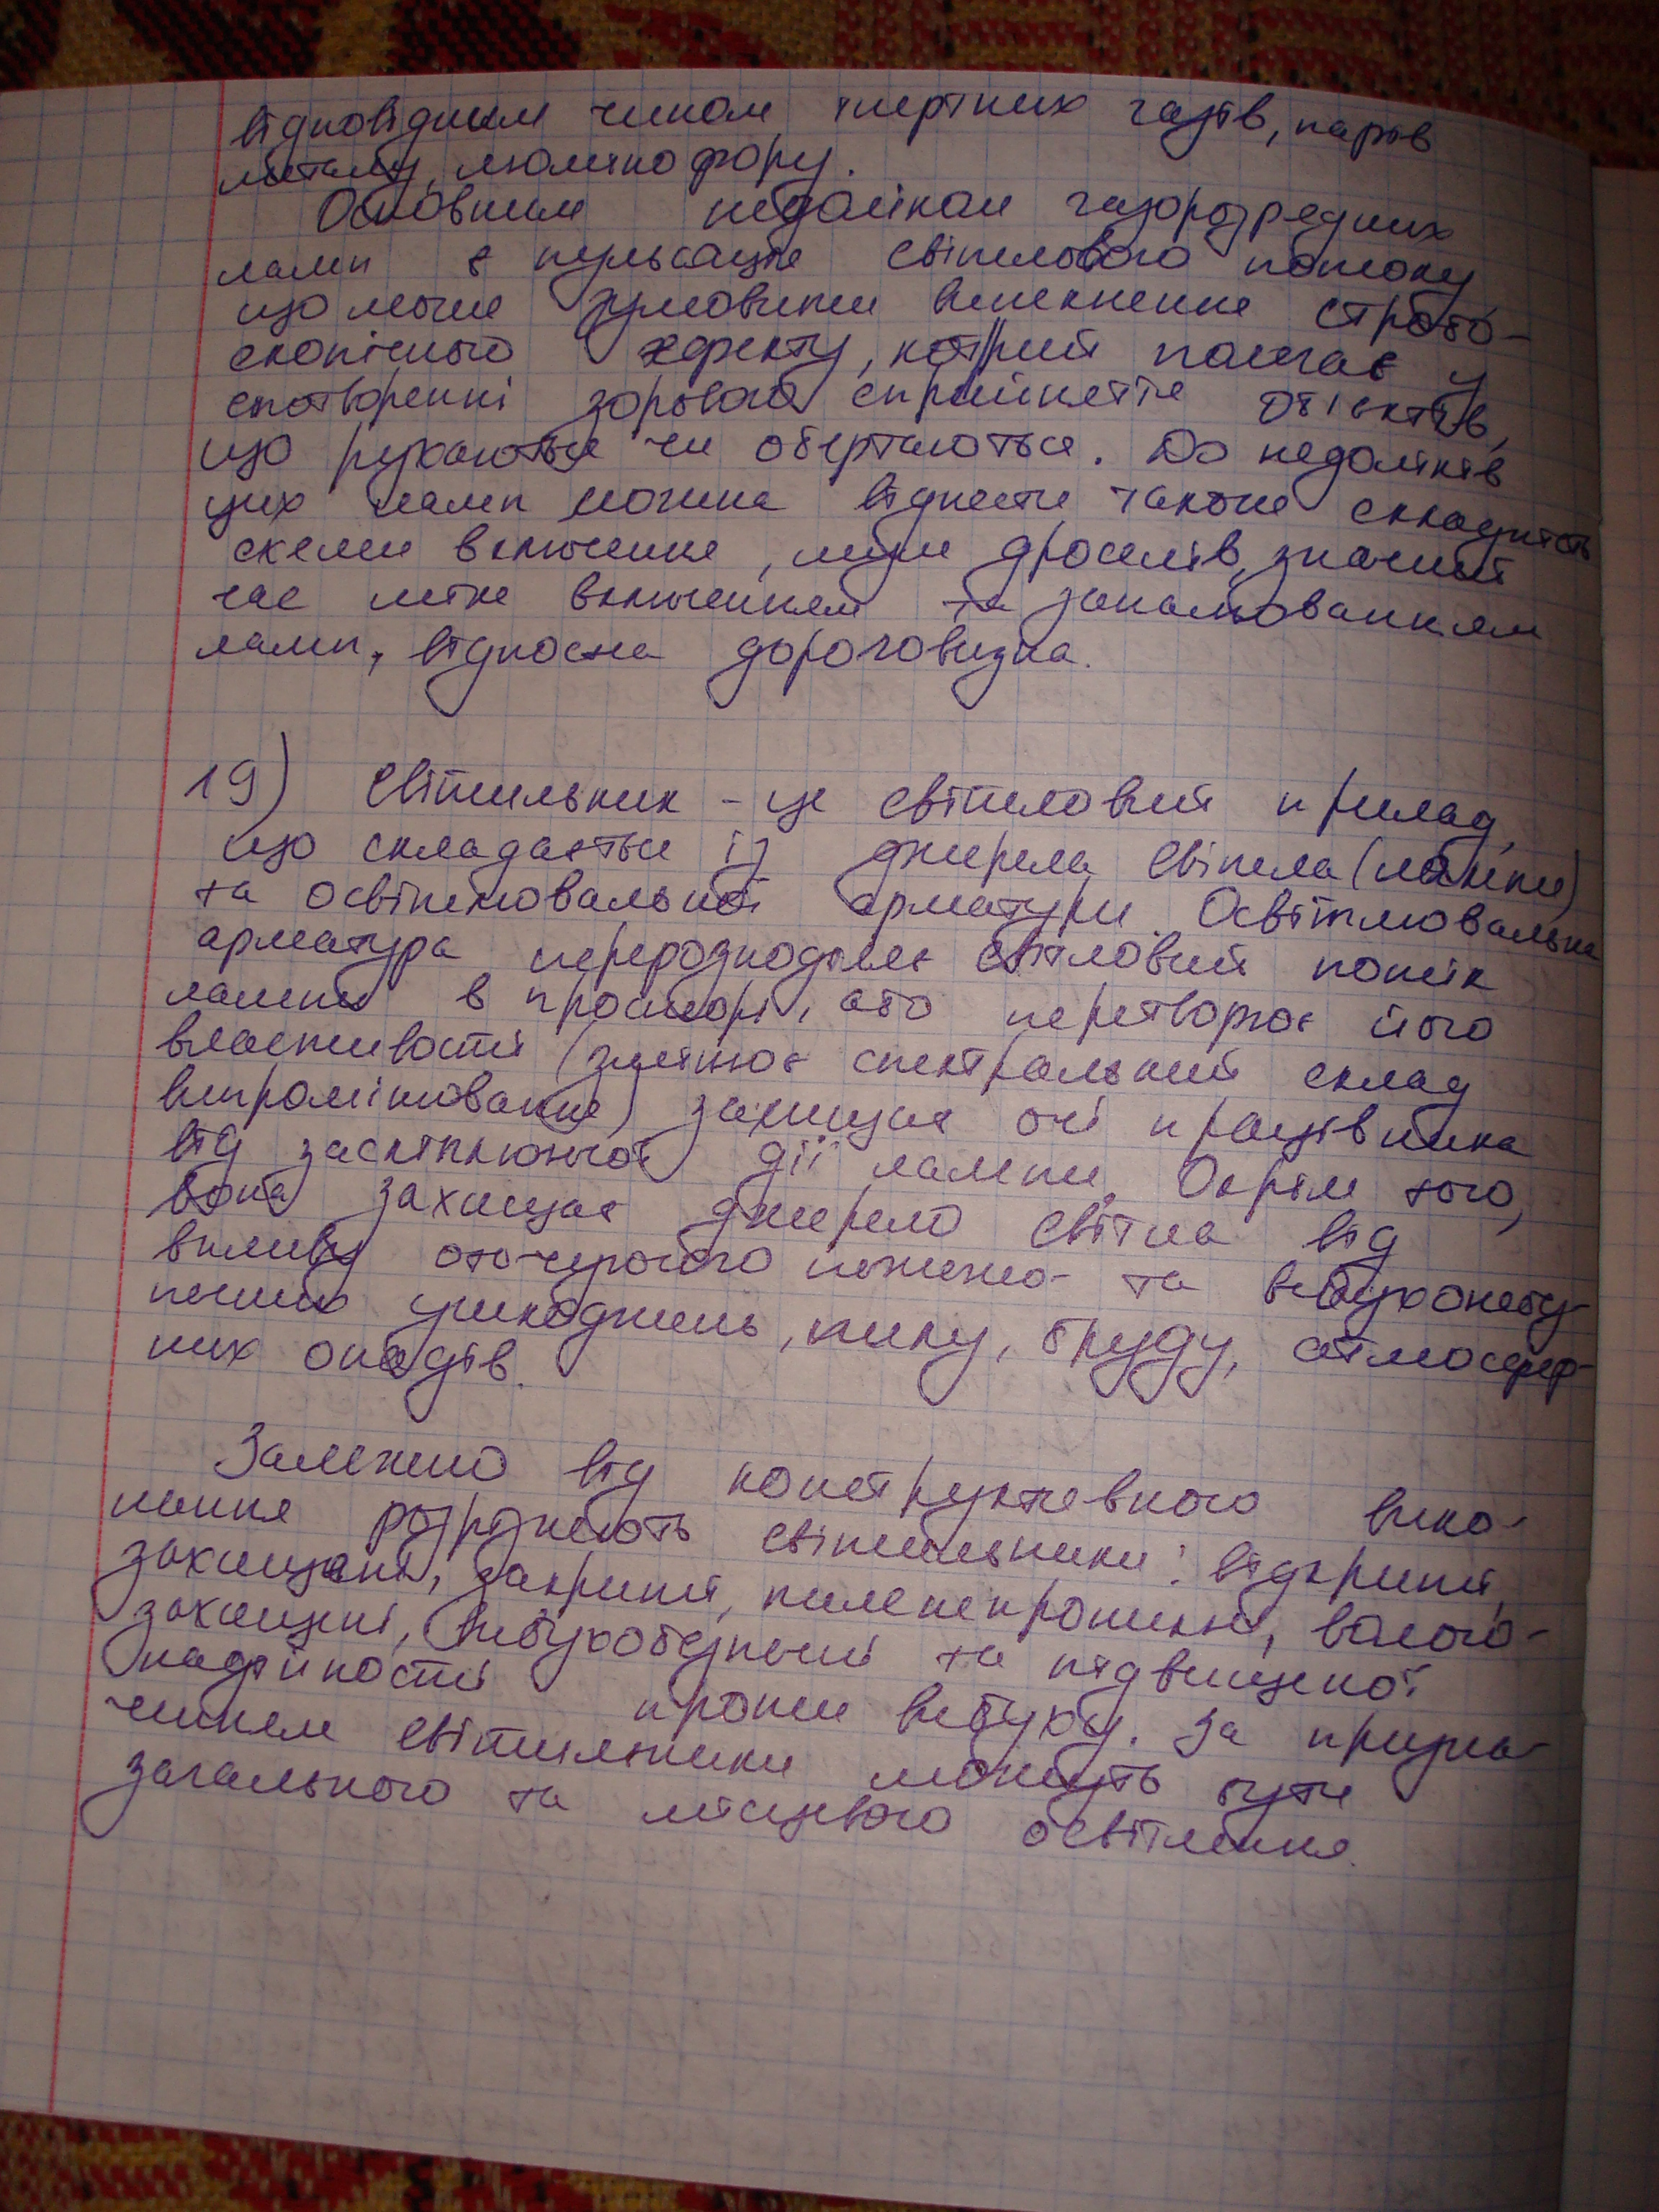 відповідним чином інертних газів, парів
металу, люмінофору.
Основним недоліком газорозрядних
ламп є пульсація світлового потоку
що може зумовити виникнення стробо-
скопічного ефекту, котрий полягає у
спотворенні зорового сприйняття об'єктів,
що рухаються чи обертаються. До недоліків
цих ламп можна віднести також складність
схеми включення, шум дроселів, значний
час між включенням та запалюванням
ламп, відносна дороговизна.
19) Світильник - це світловий прилад,
що складається із джерела світла (лампи)
та освітлювальної арматури. Освітлювальна
арматура перерозподіляє світловий потік
лампи в просторі, або перетворює його
властивості (змінює спектральний склад
випромінювання) захищає очі працівника
від засліплюючої дії лампи. Окрім того,
вона захищає джерело світла від
впливу оточуючого пожежо- та вибухонебез-
печних ушкоджень, пилу, бруду, атмосфер-
них опадів.
Залежно від конструктивного вико-
нання розрізняють світильники: відкриті,
захищені, закриті, пиленепроникні, волого-
захищені, вибухобезпечні та підвищеної
надійності проти вибуху. За призна-
ченням світильники можуть бути
загального та місцевого освітлення.